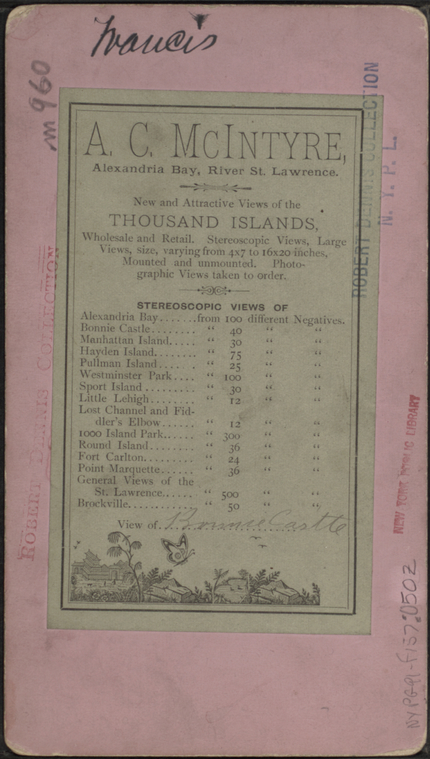 Francis
m 960
A. C. McINTYRE,
Alexandria Bay, River St. Lawrence.
New and Attractive Views of the
THOUSAND ISLANDS,
Wholesale and Retail. Stereoscopic Views, Large
Views, size, varying from 4x7 to 16x20 inches,
Mounted and unmounted. Photo-
graphic Views taken to order.
STEREOSCOPIC VIEWS OF
Alexandria Bay......from 100 different Negatives.
Bonnie Castle........ “ 40 “ “
Manhattan Island..... “ 30 “ “
Hayden Island........ “ 75 “ “
Pullman Island...... “ 25 “ “
Westminster Park.... “ 100 “ “
Sport Island........ “ 30 “ “
Little Lehigh........ “ 12 “ “
Lost Channel and Fid-
dler's Elbow....... “ 12 “ “
1000 Island Park...... “ 300 “ “
Round Island........ “ 36 “ “
Fort Carlton......... “ 24 “ “
Point Marquette...... “ 36 “ “
General Views of the
St. Lawrence...... “ 500 “ “
Brockville............ “ 50 “ “
View of Bonnie Castle
ROBERT DENNIS COLLECTION
ROBERT DENNIS COLLECTION
N. Y. P. L.
NEW YORK PUBLIC LIBRARY